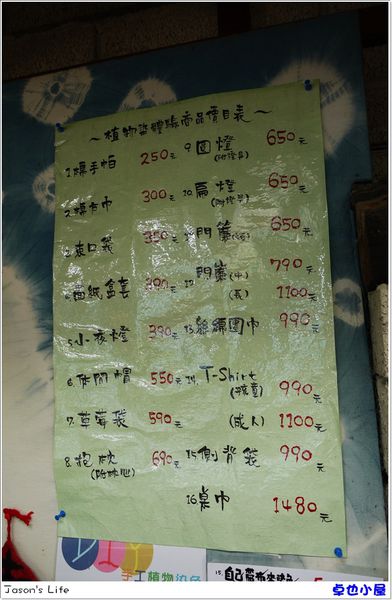 ~植物染體驗商品價目表~
1.姨手帕 250元
2.姨方巾 300元
3.束口袋 350元
4.面紙盒套 390元
5.小夜燈 390元
6.休閒帽 550元
7.草莓袋 590元
8.抱枕 690元
(附枕心)
9.圓燈 650元
(附燈具)
10.扁燈 650元
(附燈具)
11.門簾 650元
12.門簾(中) 790元
(長) 1100元
13.絲綢圍巾 990元
14.T-Shirt
(孩童) 990元
(成人) 1100元
15.側背袋 990元
16.桌巾 1480元
DIY
手工植物染色
Jason's Life
卓也小屋